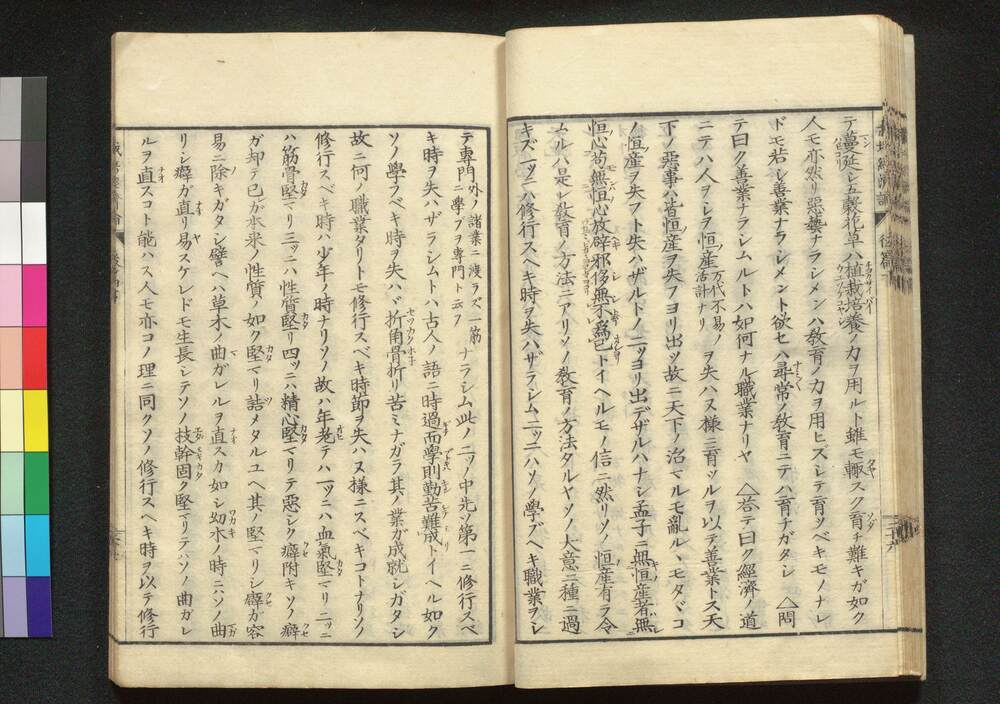 テノ蔓延シ五穀花草ハ植栽培養ノカヲ用ルト雖モ輙スク育チ難キガ如ク
人モ亦然リ惡藝ナラシメンハ敎育ノ力ヲ用ヒズシテ育ツベキモノナレ
ドモ若シ善業ナラシメント欲セハ尋常ノ敎育ニテハ育ナガタシ △問
テ曰ク善業ナラシムルトハ如何ナル職業ナリヤ △荅テ曰ク經濟ノ道
ニテハ人ヲシテ恒產万代不易ノ活計ナリヲ失ハヌ樣ニ育ツルヲ以テ善業トス天
下ノ惡事ハ皆恒產ヲ失フヨリ出ツ故ニ天下ノ治マルモ亂ルヽモタヾコ
ノ恒產ヲ失フト失ハザルトノ二ツヨリ出デザルハナシ孟子ニ無恒產者無
恒心苟無恒心放辟邪侈無不爲已トイヘルモノ信ニ然リソノ恒產有ラ令
ムルハ是レ敎育ノ方法ニアリソノ敎育ノ方法タルヤソノ大意二種ニ過
キズ一ツニハ修行スヘキ時ヲ失ハザラシム二ツニハソノ學ブヘキ職業ヲシ
テ專門外ノ諸業ニ渡ラズ一筋ニ學フヲ專門ト云フナラシム此ノ二ツノ中先ツ第一ニ修行スベ
キ時ヲ失ハザラシムトハ古人ノ語ニ時過而學則勤苦難成トイヘル如ク
ソノ學フベキ時ヲ失ハヾ折角骨折リ苦ミナガラ其ノ業ガ成就シガタシ
故ニ何ノ職業タリトモ修行スベキ時節ヲ失ハヌ樣ニスベキコトナリソノ
修行スベキ時ハ少年ノ時ナリソノ故ハ年老テハ一ツニハ血氣堅マリ二ツニ
ハ筋骨堅マリ三ツニハ性質堅マリ四ツニハ精心堅マリテ惡シク癖附キソノ癖
ガ却テ已ガ本來ノ性質ノ如ク堅マリ詰メタルユヘ其ノ堅マリシ癖ガ容
易ニ除キガタシ譬ヘハ草木ノ曲ガレルヲ直スカ如シ幼木ノ時ニハソノ曲
リシ癖ガ直リ易スケレドモ生長シテソノ技幹固ク堅マリテハソノ曲ガレ
ルヲ直スコト能ハス人モ亦コノ理ニ同クソノ修行スヘキ時ヲ以テ修行